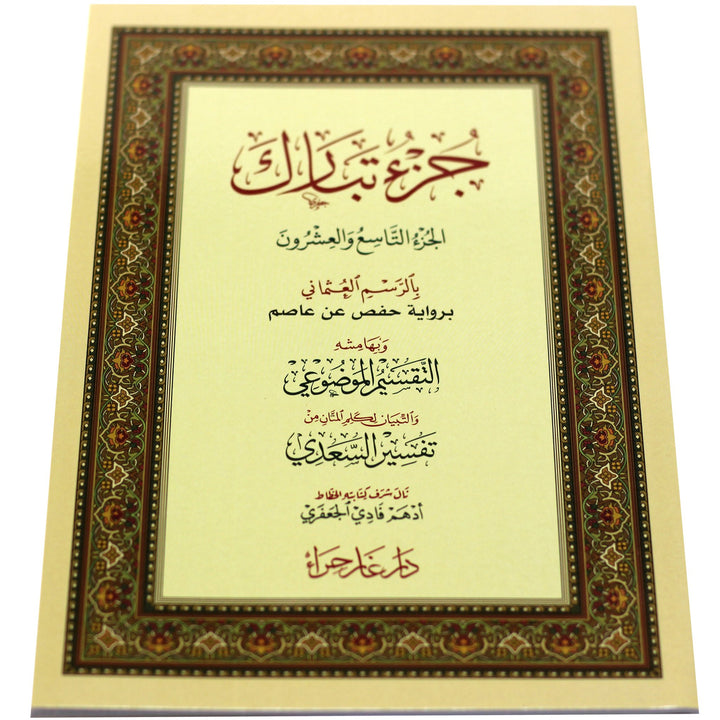 جُزْءُ تَبَارَكَ
الجُزْءُ التَّاسِعُ وَالعِشْرُونَ
بِالرَّسْمِ العُثْمَانِي
برواية حفص عن عاصم
وَبِهَامِشِهِ
التَّقْسِيمُ المَوْضُوعِي
وَالتِّبْيَان لِكَلِمِ المَنَّانِ مِنْ
تَفْسِيرِ السَّعْدِي
نَالَ شَرَفَ كِتَابَتِهِ الخَطَّاط
أدهَم فَادِي الجَعفَرِي
دَار غَار حِرَاء